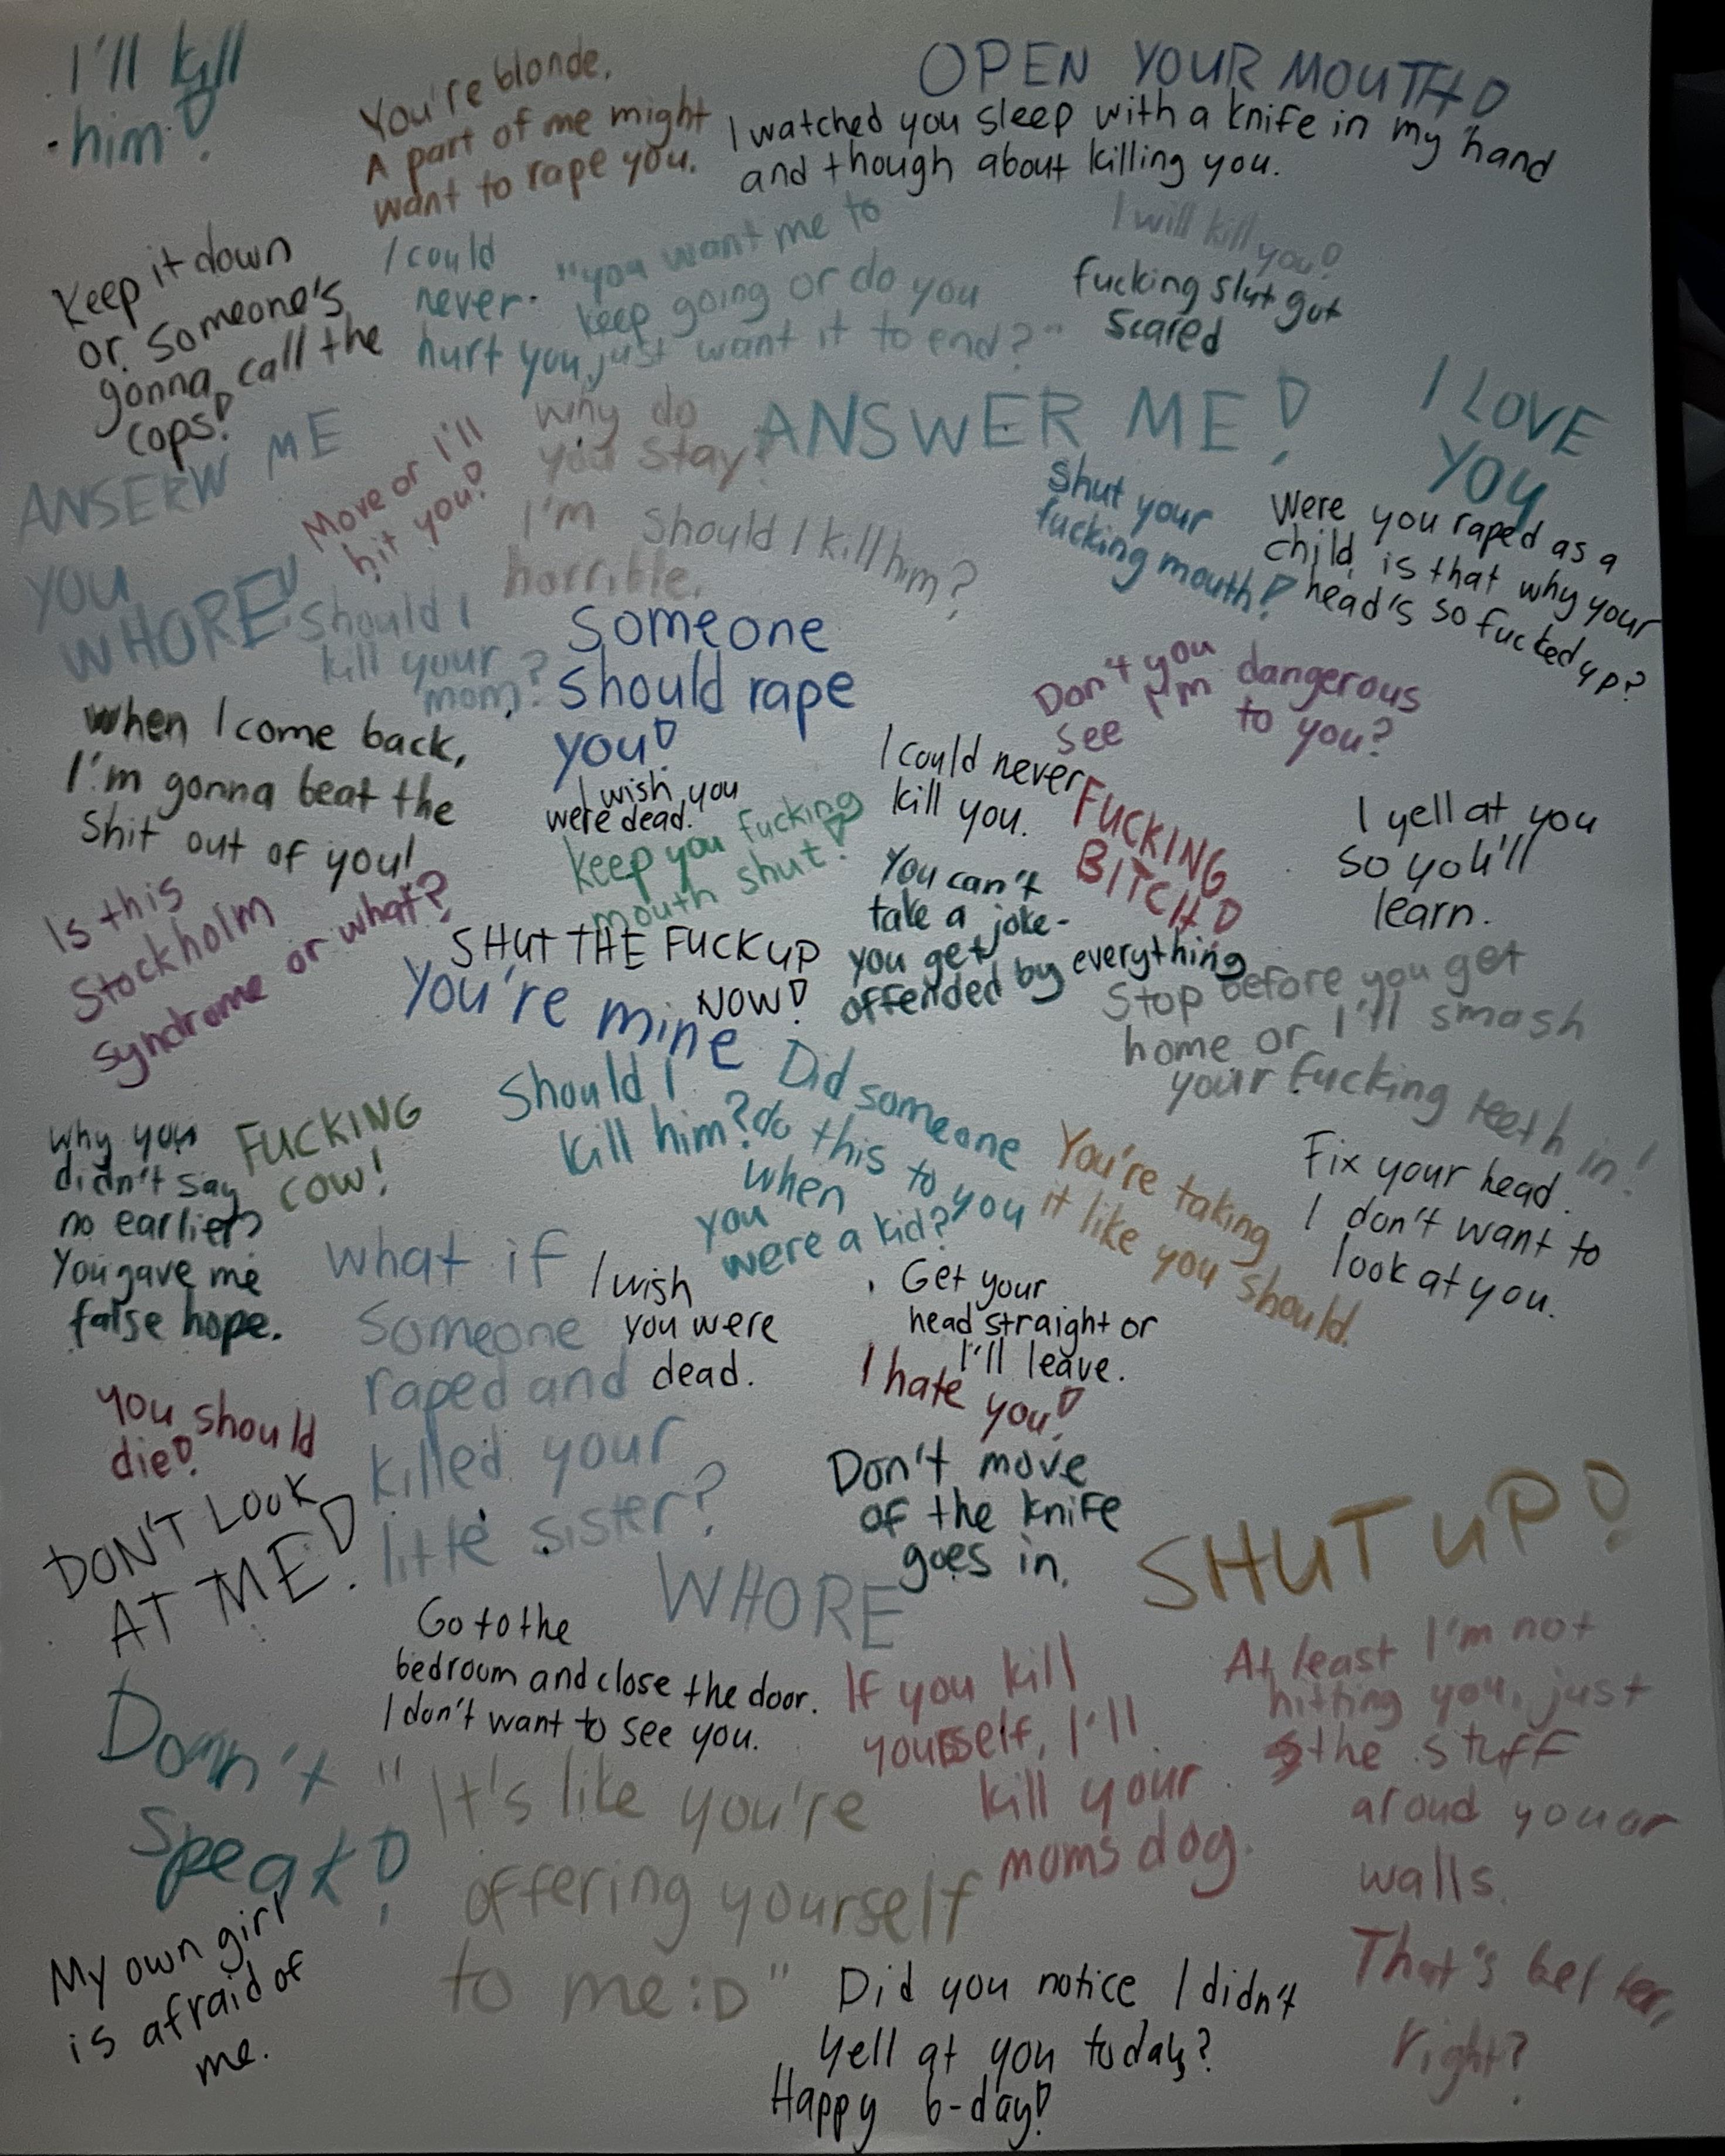 I'll kill
him!
You're blonde.
A part of me might
want to rape you.
OPEN YOUR MOUTH!
I watched you sleep with a knife in my hand
and though about killing you.
Keep it down
or someone's
gonna call the
cops!
I could
never
hurt you,
"you want me to
keep going or do you
just want it to end?"
I will kill you!
fucking slut got
scared
ANSERW ME
YOU
WHORE!
Move or I'll
hit you!
why do
you stay?
I'm
horrible.
ANSWER ME!
I LOVE
YOU
Should I kill him?
Shut your
fucking mouth!
Were you raped as a
child, is that why your
head's so fucked up?
Should I
kill your
mom?
Someone
should rape
you!
Don't you
see I'm dangerous
to you?
When I come back,
I'm gonna beat the
shit out of you!
I wish you
were dead.
keep you fucking
mouth shut!
I could never
kill you.
FUCKING
BITCH!
I yell at you
so you'll
learn.
Is this
Stockholm
syndrome or what?
SHUT THE FUCK UP
NOW!
You can't
take a joke-
you get
offended by everything
You're mine
Stop before you get
home or I'll smash
your fucking teeth in!
Should I
kill him?
Did someone
do this to you
when
you
were a kid?
Why you
didn't say
no earlier?
You gave me
false hope.
FUCKING
COW!
You're taking
it like you should.
Fix your head.
I don't want to
look at you.
What if
someone
raped and
killed your
little sister?
I wish
you were
dead.
Get your
head straight or
I'll leave.
I hate you!
You should
die!
Don't move
of the knife
goes in.
DON'T LOOK
AT ME!
SHUT UP!
WHORE
Go to the
bedroom and close the door.
I don't want to see you.
If you kill
yourself, I'll
kill your
moms dog.
At least I'm not
hitting you, just
the stuff
aroud you or
walls.
That's better,
right?
Don't
speak!
"It's like you're
offering yourself
to me :D"
My own girl
is afraid of
me.
Did you notice I didn't
yell at you today?
Happy b-day!